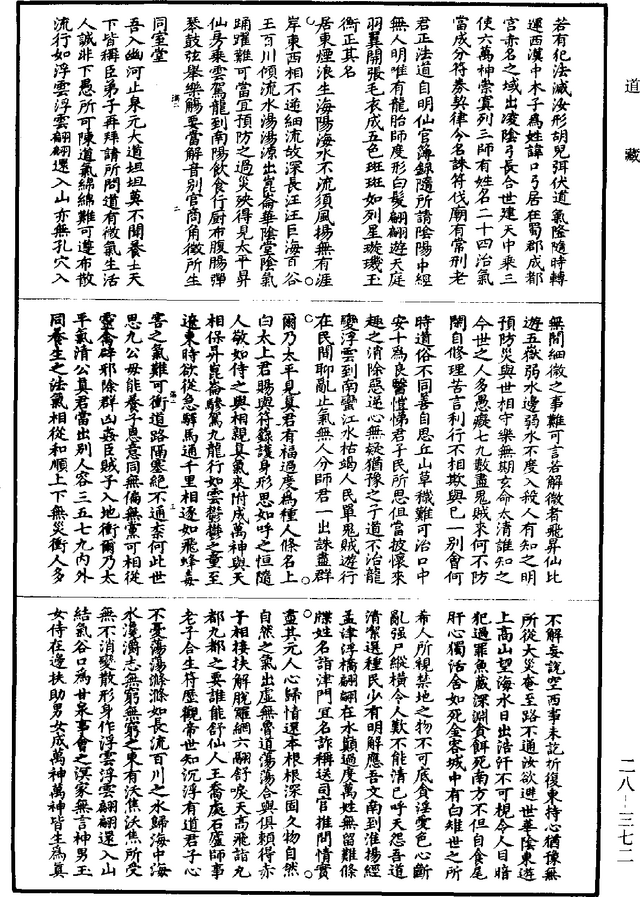 道藏
若有犯法滅汝形胡兒弭伏道氣隆隨時轉
運西漢中木子為姓諱口弓居在蜀郡成都
宮赤名之域出凌陰弓長合世建天中乘三
使六萬神崇寘列三師有姓名二十四治氣
當成分符券契律令名誅符伐廟有常刑老
君正法道自明仙官簿錄隨所請陰陽中經
無人明唯有龍胎師度形白髮翩翩遊天庭
羽翼開張毛衣成五色斑斑如列星璇璣玉
衡正其名
居東煙浪生海陽海水不流須風揚無有涯
岸東西相不遞細流故深長汪汪巨海百谷
王百川傾流水湯湯源出崑崙華陰堂陰氣
踴躍難可當宜預防之過災殃得見太平昇
仙身乘雲駕龍到南陽飲食行廚布腹腸彈
琴鼓弦舉樂觴要當解音別宮商角徵所生
同室堂
吾入幽河止泉元大道坦坦冀不聞養士天
下皆稱臣弟子再拜請所問道有微氣生活
人誠非下愚所可陳道氣綿綿難可遵布散
流行如浮雲浮雲翩翩還入山亦無孔穴入
無間細微之事難可言若解微者飛昇仙比
遊五嶽弱水邊弱水不度入殺人有知之明
預防災與世相守樂無期玄命太清誰知之
今世之人多愚癡七九數盡鬼賊來何不防
閑自修理苦言利行不相欺與已一別會何
時道俗不同善自思丘山草穢難可治口中
安十為良醫愷悌君子民所思但當披懷來
趣之消除惡逆心無疑猶豫之子道不治龍
變浮雲到南蠻江水枯竭人民單鬼賊遊行
在民間聊亂正氣無人分師君一出誅盡群
爾乃太平見真君有福過度為種人條名上
白太上君賜與符籙護身形思如呼之恒隨
人敬如侍之與相親真氣來附成萬神與天
相保昇崑崙驂駕九龍行如雲鬱鬱之童至
遼東時欲從急驛馬通千里相逐如飛蜂毒
害之氣難可衝道路隔塞絕不通柰何此世
思九公母能養子恩意同無偏無黨可相從
靈禽辟邪除群凶姦臣賊子入地衝爾乃太
平氣清公真君當出別人容三五七九內外
同養生之法氣相從和順上下無災衝人多
不解妄說空西事未訖祈復東持心猶豫無
所從大災奄至路不通汝欲避世華陰東遊
上高山望海水日出浩汗不可視令人目暗
犯過罪魚藏深淵貪餌死南方不但自食尾
肝心獨活舍如死金容城中有白雉世之所
希人所視禁地之物不可底食淫愛色心斷
亂强尸縱橫令人歎不能清已呼天怨吾道
清潔選種民少有明解應吾文南到淮揚經
孟津浮橋翩翩在水顛過度萬姓無留難條
牒姓名詣津門宜名詐稱送司官推問情實
盡其元人心歸情還本根根深固久物自然
自然之氣出虛無魯道蕩蕩合與俱賴得赤
子相接扶解脫羅網六翮舒唳天高飛詣九
都九都之要誰能舒仙人王喬處石廬師事
老子合生符歷觀帝世知沉浮有道君子心
不憂蕩蕩滌滌如長流百川之水歸海中海
水漫滿志無窮無窮之東有沃焦沃焦所受
無不消變散形身作浮雲浮雲翩翩還入山
結氣谷口為甘泉事會之淏家無言神男玉
女侍在邊扶助男女成萬神萬神皆生為真
二八—三七二